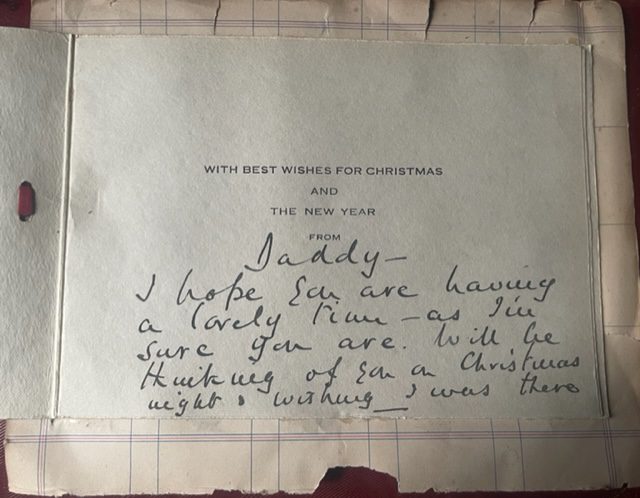 WITH BEST WISHES FOR CHRISTMAS
AND
THE NEW YEAR
FROM
Daddy —
I hope you are having
a lovely time — as I'm
sure you are. Will be
thinking of you on Christmas
night & wishing I was there